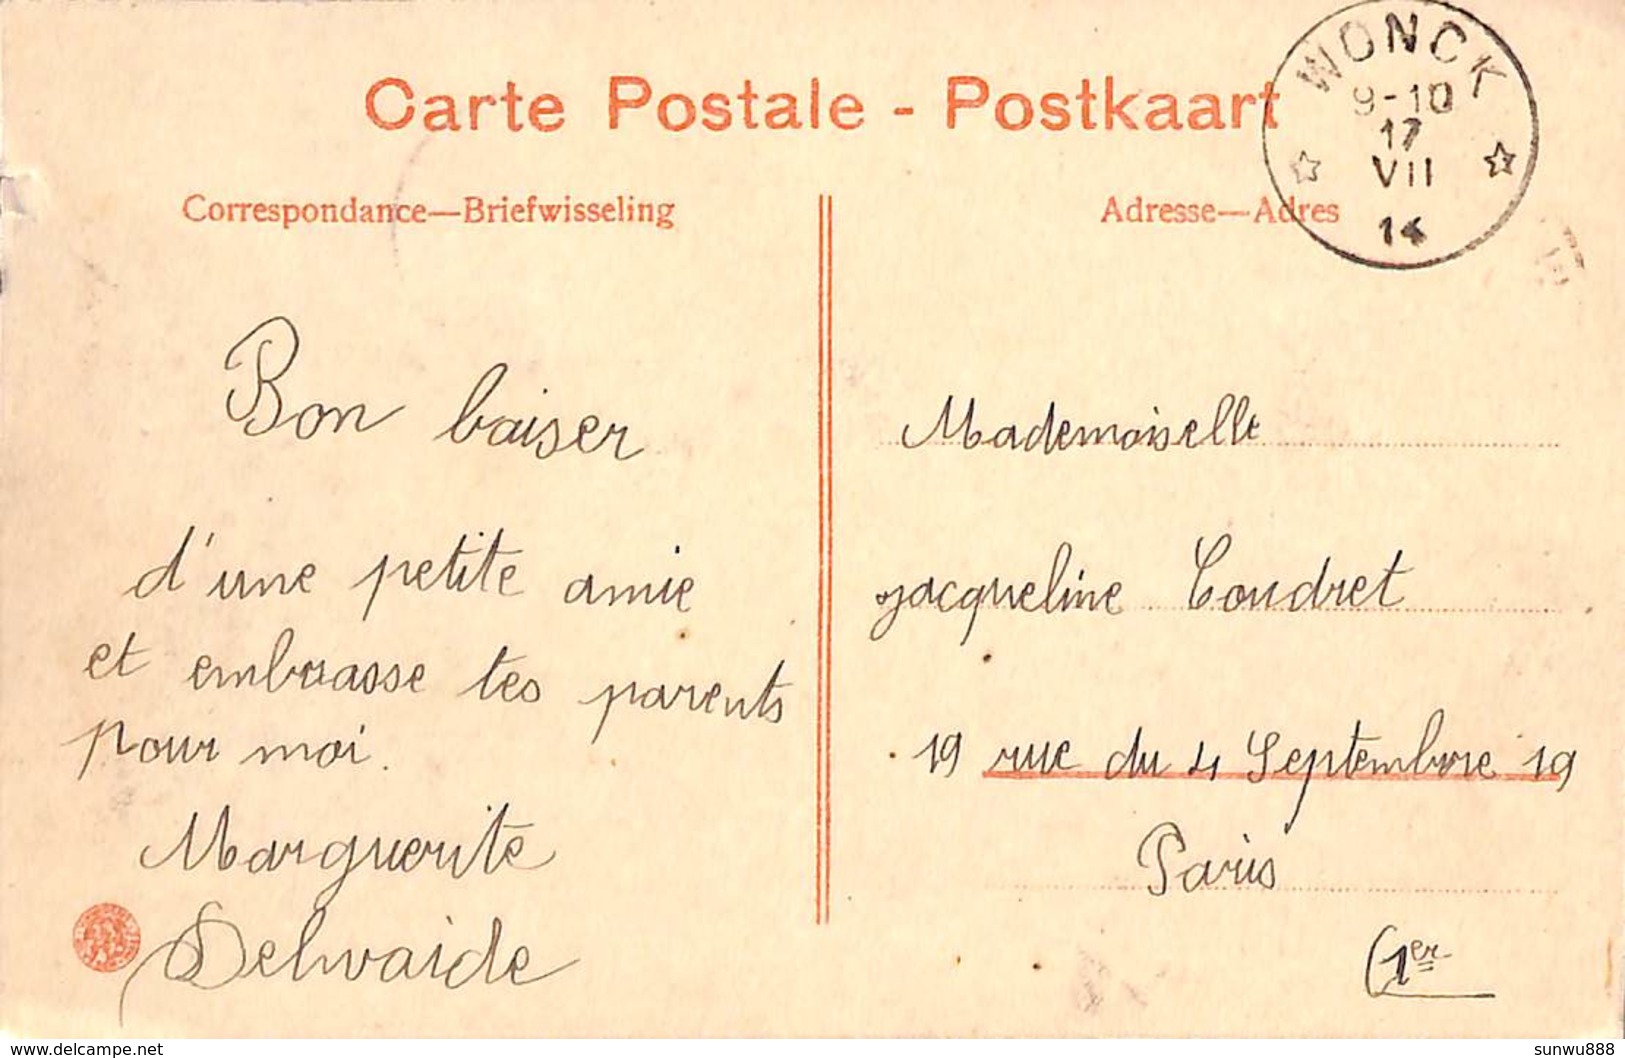 Carte Postale - Postkaart
WONCK
9-10
17
VII
14
Correspondance—Briefwisseling
Adresse—Adres
Bon baiser
d'une petite amie
et embrasse tes parents
pour moi.
Marguerite
Delwaide
Mademoiselle
Jacqueline Coudret
19 rue du 4 Septembre 19
Paris
(1er
www.delcampe.net
sunwu888